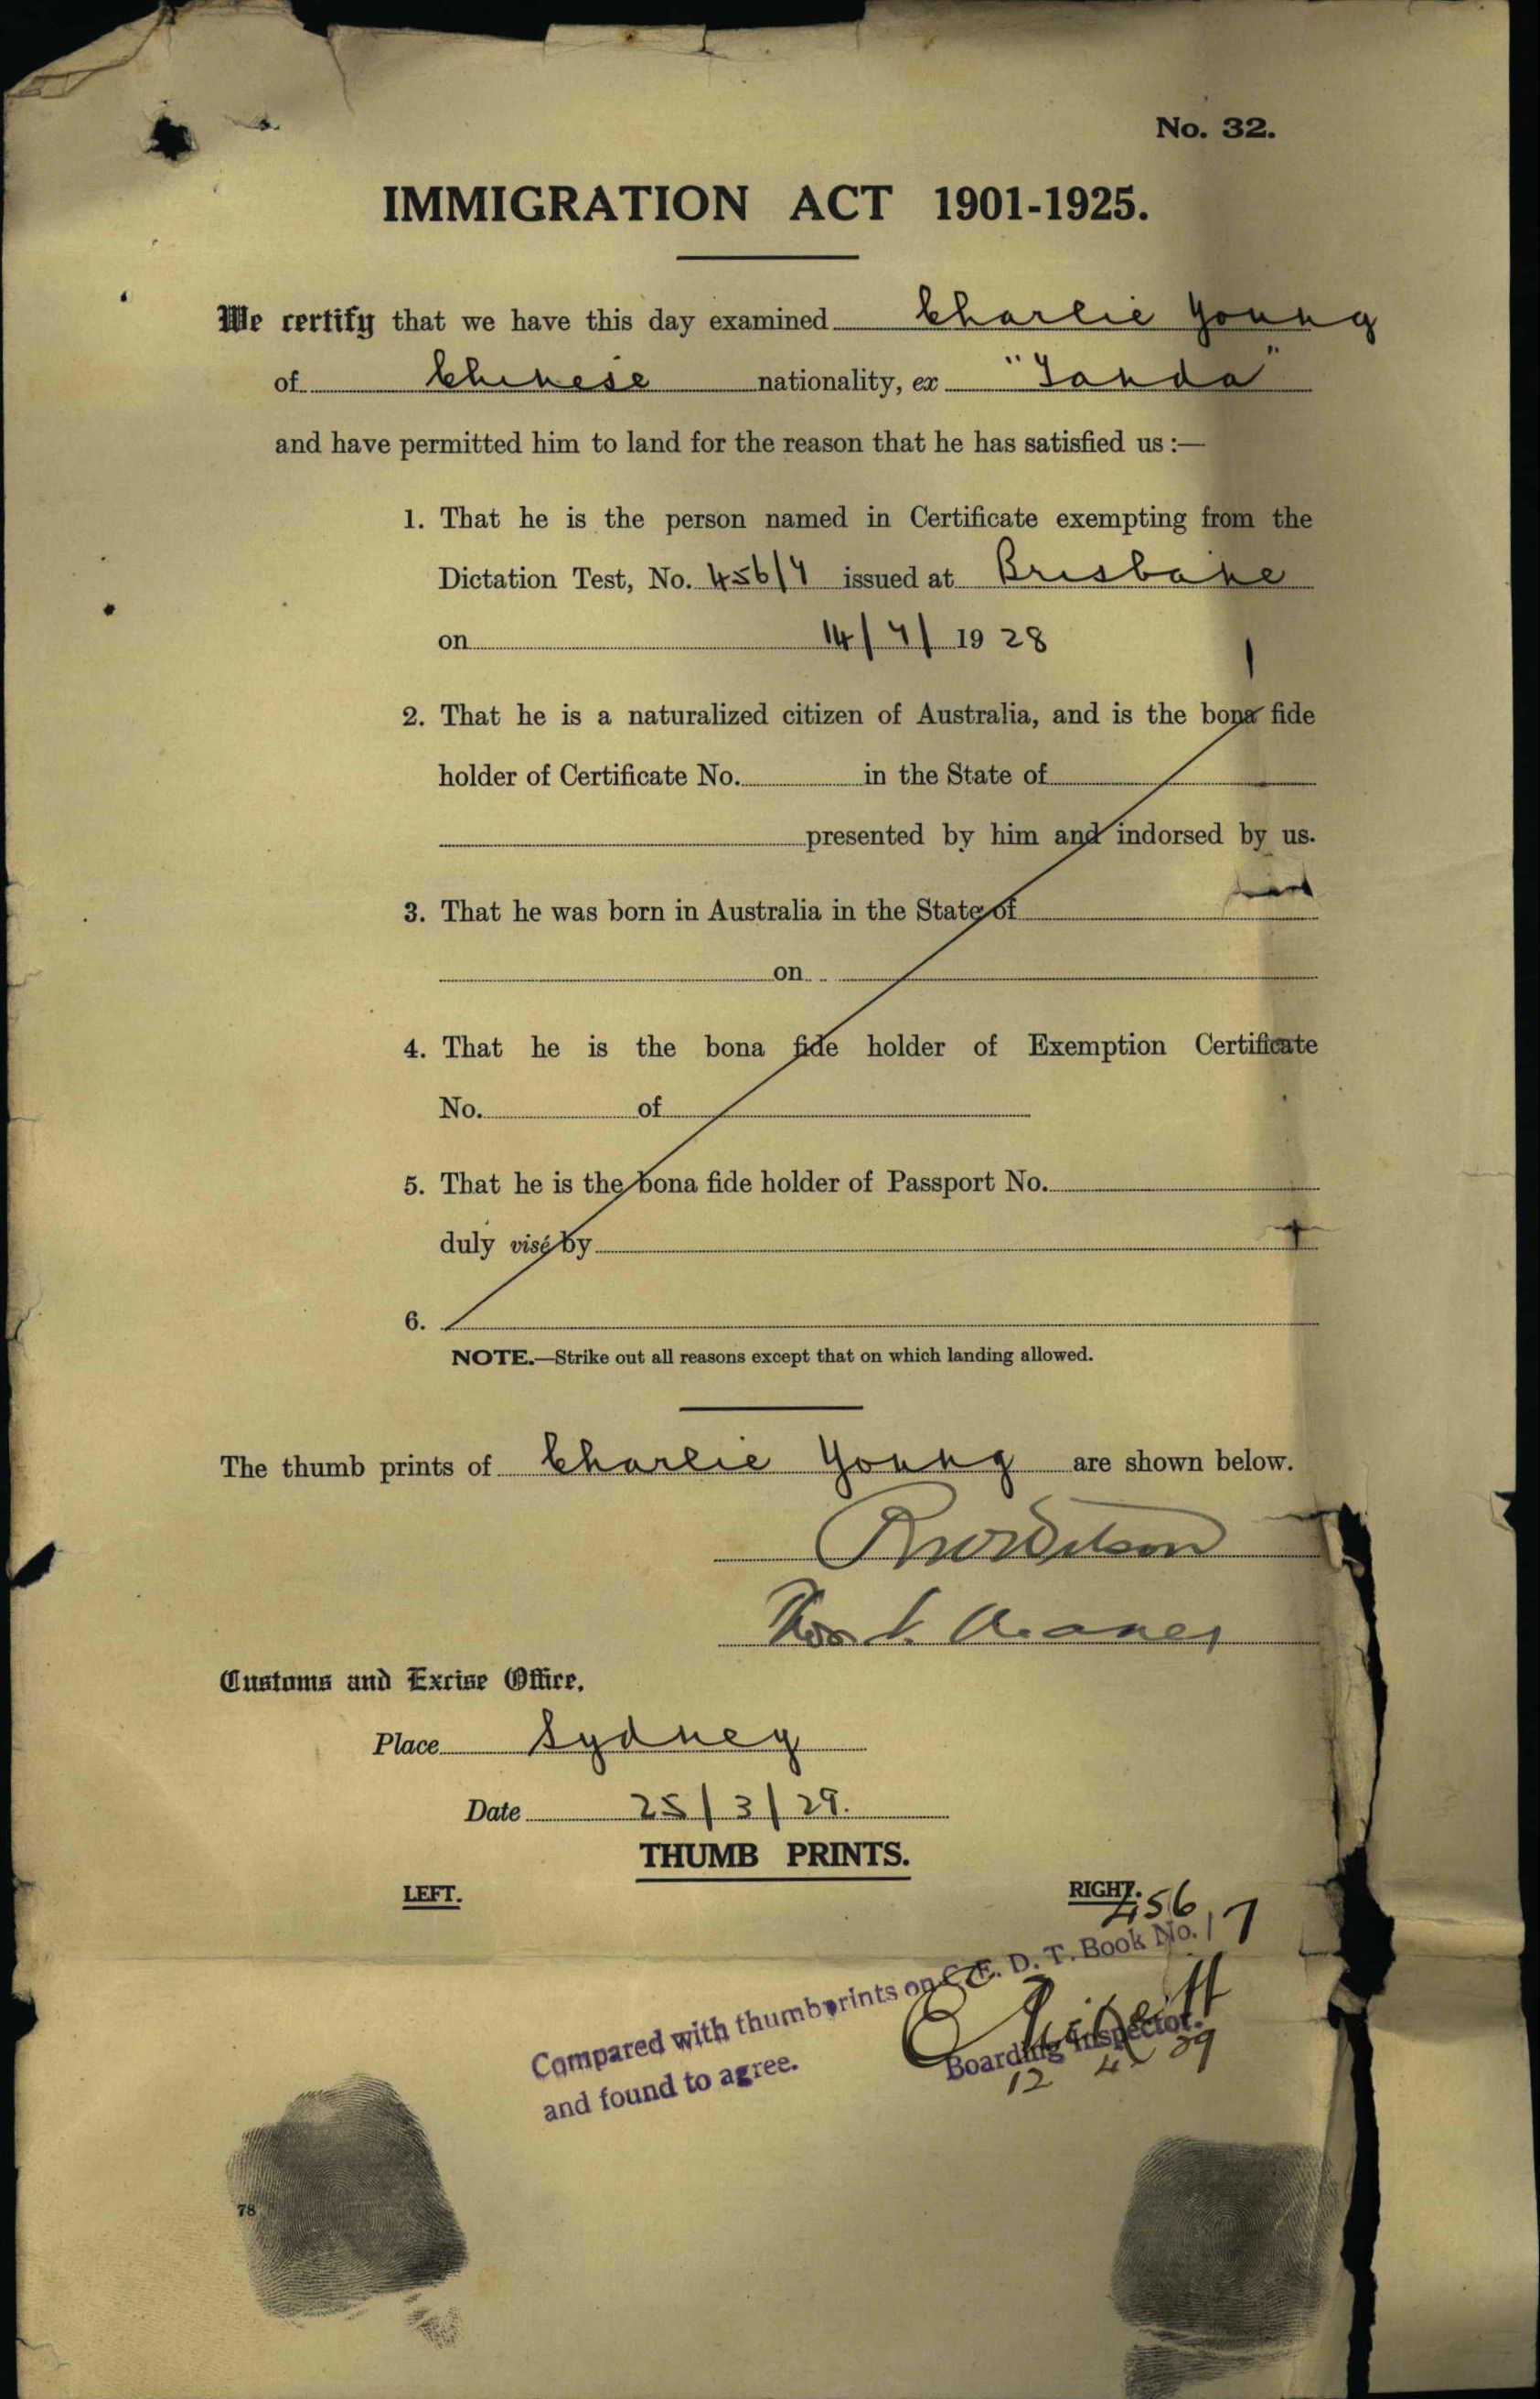 No. 32.
IMMIGRATION ACT 1901-1925.
We certify that we have this day examined Charlie Young
of Chinese nationality, ex "Tanda"
and have permitted him to land for the reason that he has satisfied us :—
1. That he is the person named in Certificate exempting from the
Dictation Test, No. 456/7 issued at Brisbane
on 14/7/1928
2. That he is a naturalized citizen of Australia, and is the bona fide
holder of Certificate No. in the State of
presented by him and indorsed by us.
3. That he was born in Australia in the State of
on
4. That he is the bona fide holder of Exemption Certificate
No. of
5. That he is the bona fide holder of Passport No.
duly visé by
6.
NOTE.—Strike out all reasons except that on which landing allowed.
The thumb prints of Charlie Young are shown below.
Wilson
Thos
Customs and Excise Office,
Place Sydney
Date 25/3/29.
THUMB PRINTS.
LEFT. RIGHT.
456/7
Compared with thumbprints on C. E. D. T. Book No.
and found to agree.
Boarding Inspector.
12 4 29
78